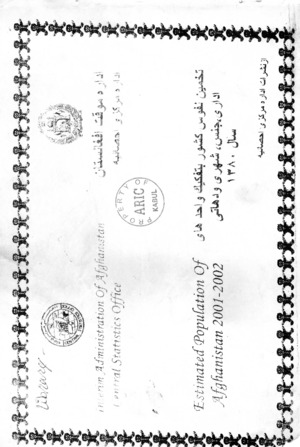 اداره موقت افغانستان
اداره مرکزی احصائیه
Library
Interim Administration Of Afghanistan
Central Statistics Office
PROPERTY OF
ARIC
KABUL
تخمین نفوس کشور بتفکیک واحد های
اداری، جنس، شهری ودهاتی
سال ۱۳۸۰
Estimated Population Of
Afghanistan 2001-2002
ازنشرات اداره مرکزی احصائیه